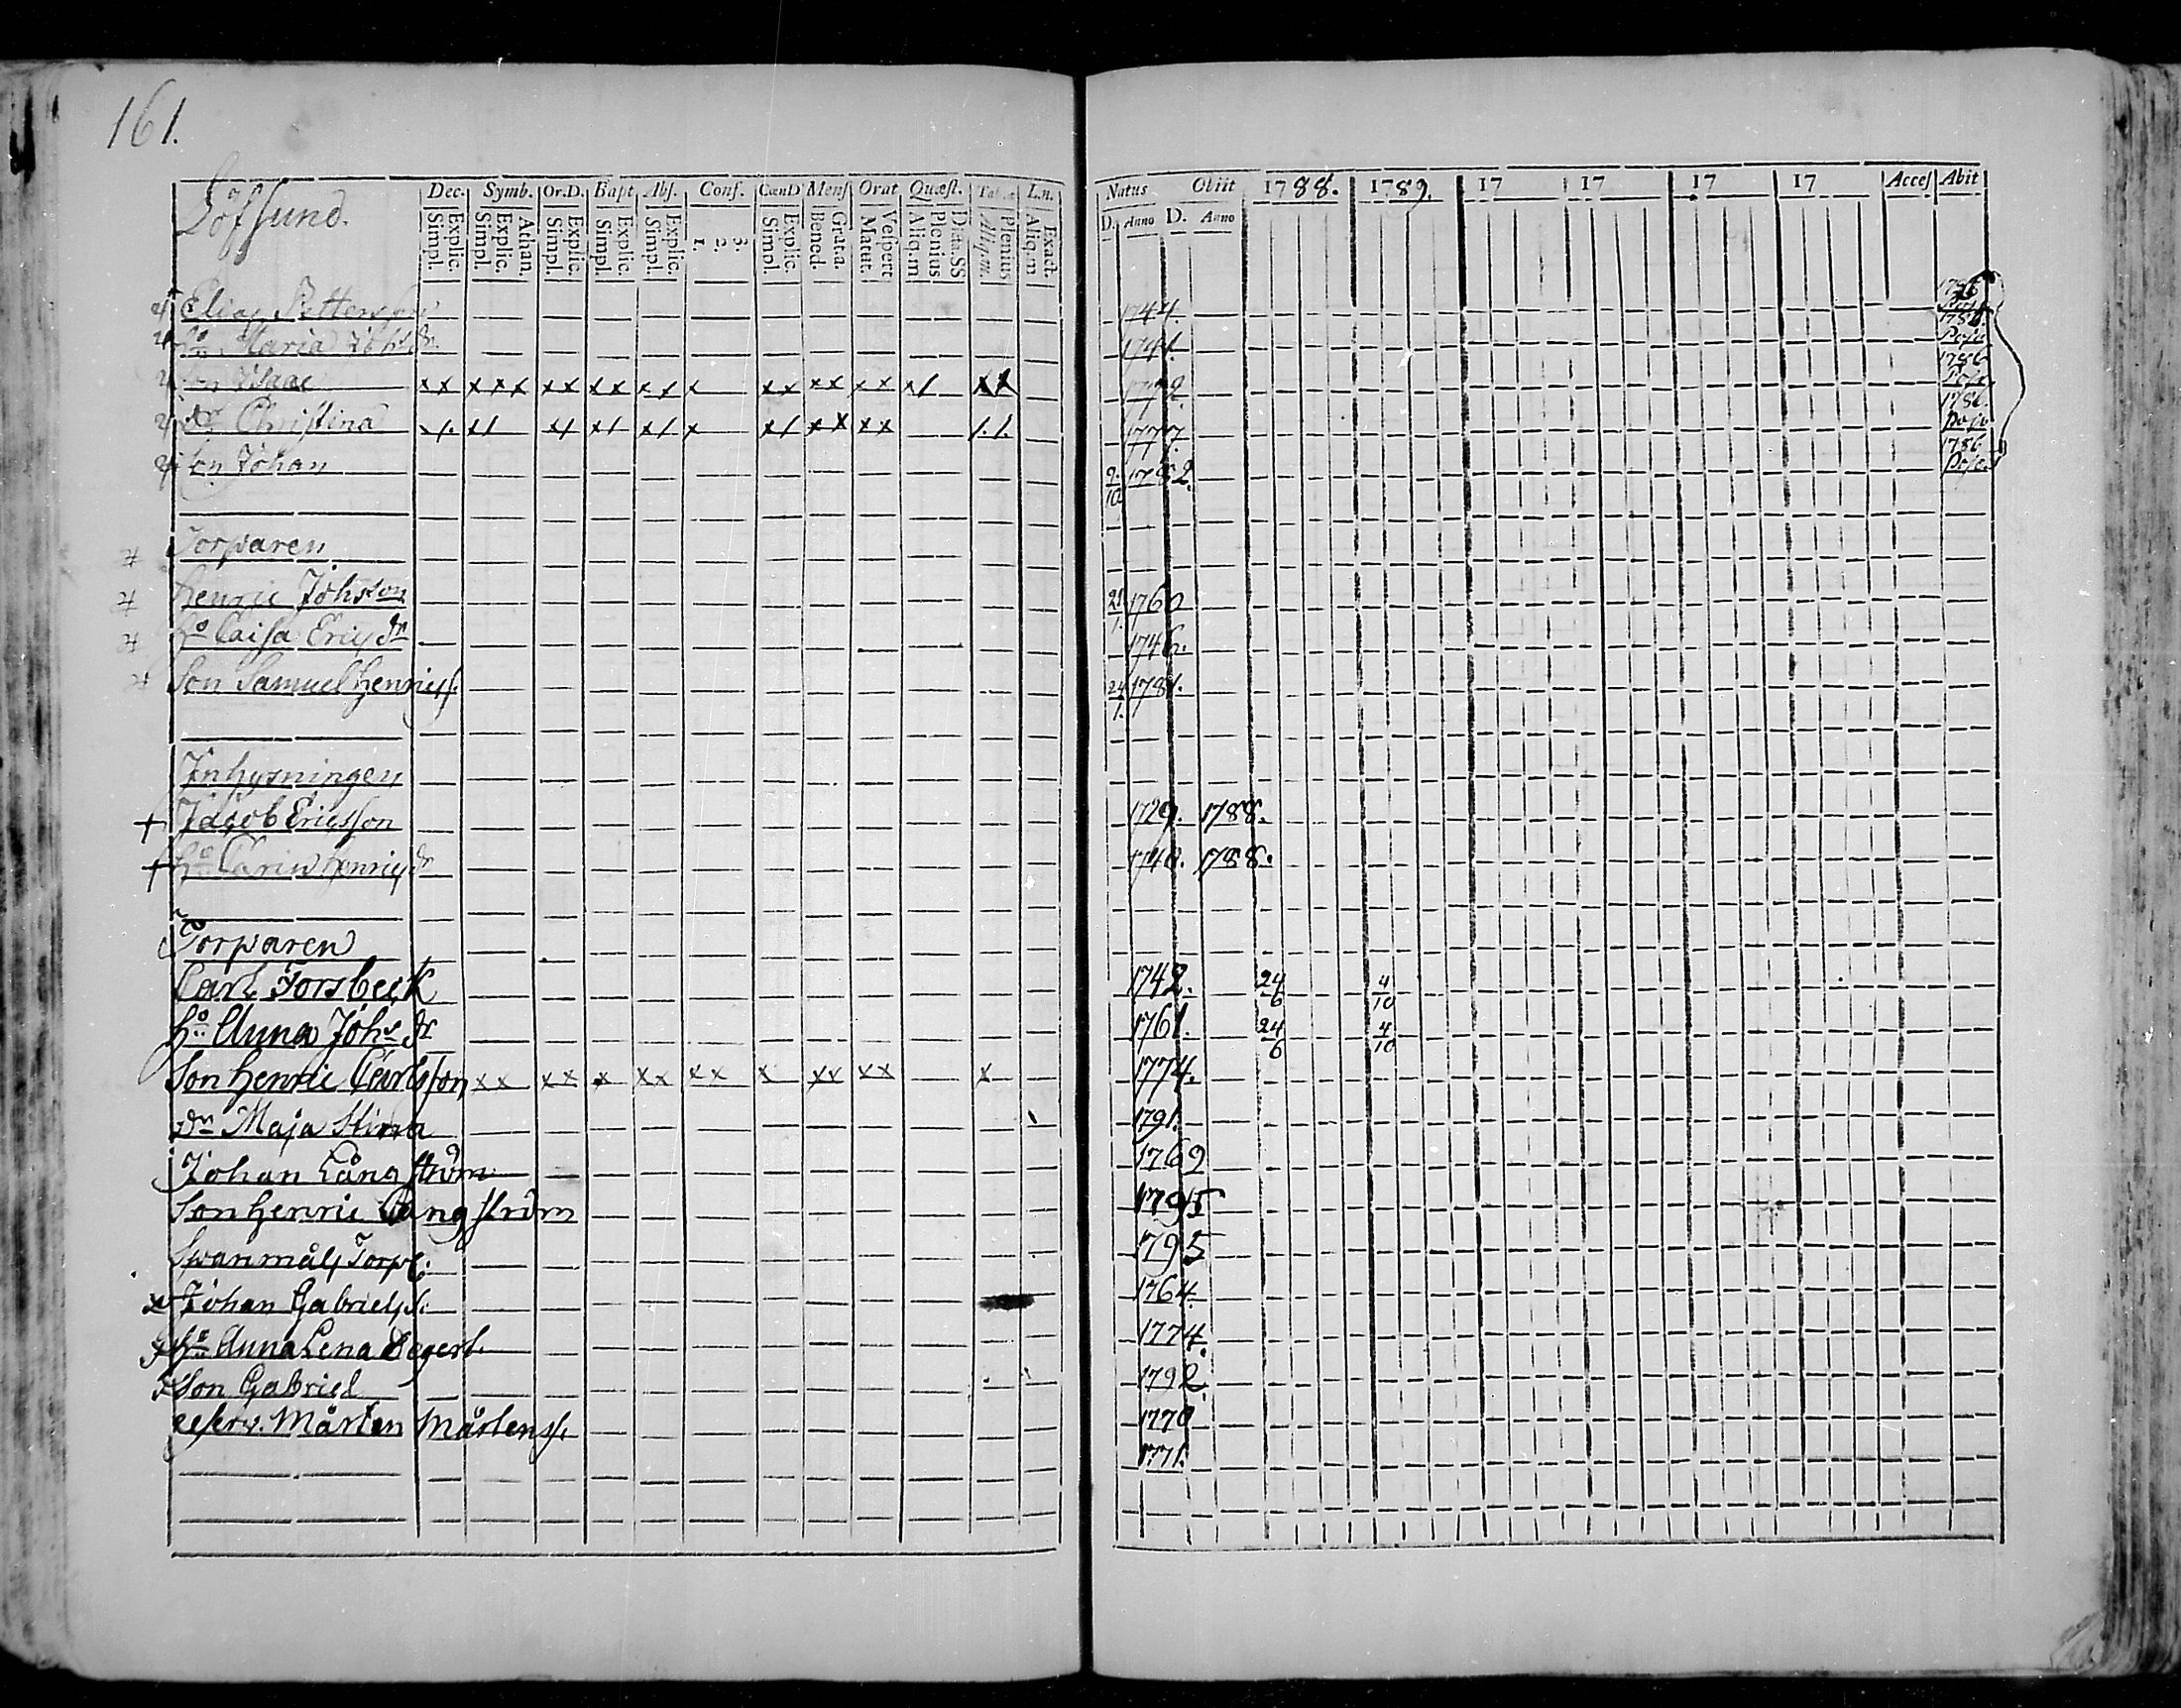 161.
Löfsund.
Dec. Symb. Or.D. Bapt. Abs. Conf. CœnD Mens Orat. Quæst. Tab. L.n.
Simpl. Explic. Simpl. Explic. Athan. Simpl. Explic. Simpl. Explic. Simpl. Explic. 1. 2. 3. Simpl. Explic. Bened. Grat.a. Matut. Vespert Aliq.m Plenius Dicta.SS Aliq.m. Plenius Aliq.m Exact.
Natus Obiit 1788. 1789. 17 17 17 17 Acces Abit
D. Anno D. Anno
Elias Pettersson 1744. 1786
Ho Maria Johsdr 1741. 1786. Pojo
Son Isaac x x x x x x x x x x x x x x x x x x x 1786 Pojo
dr Christina 1777. 1786. Pojo
Son Johan 9/10 1782. 1786 Pojo.
Torparen
Henric Johsson 21/1. 1760
Ho Caisa Ericsdr 1746.
Son Samuel Henricss. 24/1. 1781.
Inhysningen
+ Jacob Ericsson 1729. 1788.
+ Ho Carin Henricsdr 1748. 1788.
Torparen
Carl Forsbeck 1742. 24/6 4/10
Ho Anna Johsdr 1761. 24/6 4/10
Son Henric Carlsson x x x x x x x x x x x x x x x 1774.
dr Maja Stina 1791.
Johan Långström 1769
Son Henric Långström 1795
Swanmåls Torp. 1795
Johan Gabrielss. 1764.
Ho Anna Lena Segerb. 1774.
Son Gabriel 1792.
reserv. Mårten Mårtenss. 1770
1771.